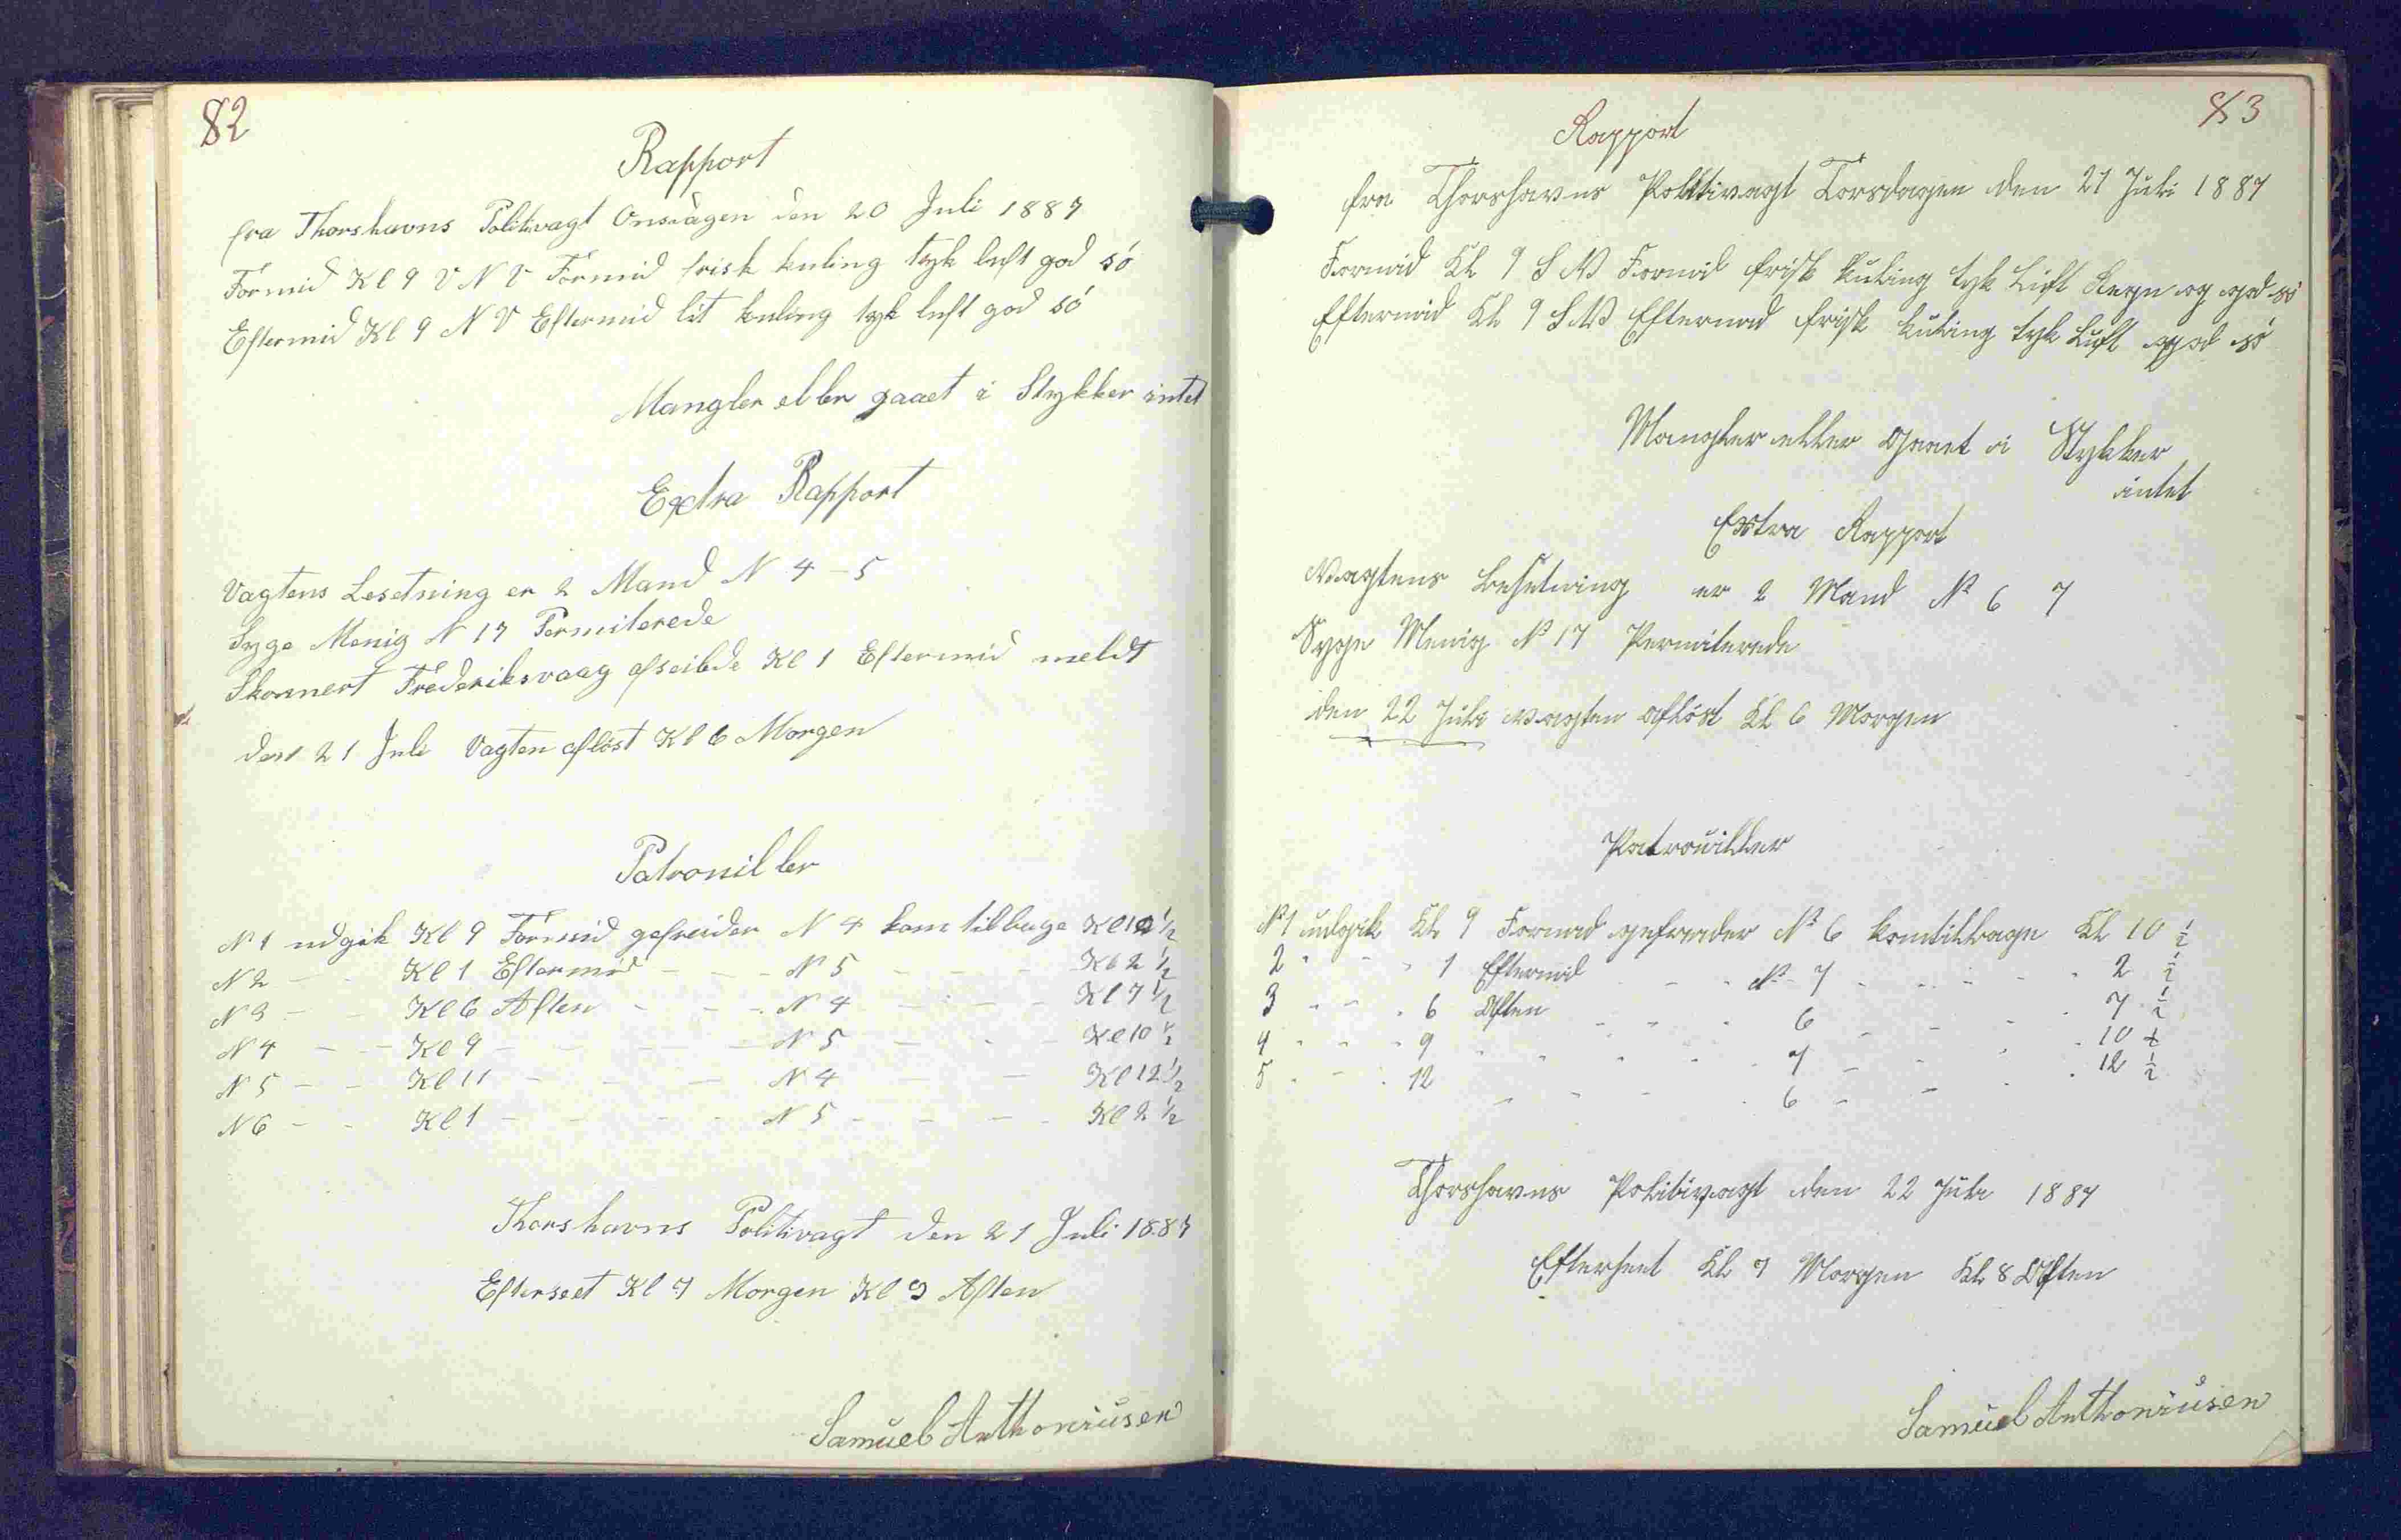 82
Rapport
fra Thorshavns Politivagt Onsdagen den 20 Juli 1887
Formid Kl 9 V N V Formid frisk kuling tyk luft god só
Eftermid Kl 9 N V Eftermid lit kuling tyk luft god só
Mangler eller gaaet i Stykker intet
Extra Rapport
Vagtens Besetning er 2 Mand N 4 - 5
Syge Menig N 17 Permiterede
Skonnert Frederiksvaag afseilede Kl 1 Eftermid meldt
den 21 Juli Vagten aflöst Kl 6 Morgen
Patrouiller
N 1 udgik Kl 9 Formid gefreider N 4 kom tilbage Kl 10 1/2
N 2 - - Kl 1 Eftermid - - - N 5 - - - Kl 2 1/2
N 3 - - Kl 6 Aften - - - N 4 - - - Kl 7 1/2
N 4 - - Kl 9 - - - - N 5 - - - Kl 10 1/2
N 5 - - Kl 11 - - - N 4 - - Kl 12 1/2
N 6 - - Kl 1 - - - - N 5 - - - - Kl 2 1/2
Thorshavns Politivagt den 21 Juli 1887
Efterseet Kl 7 Morgen Kl 9 Aften
Samuel Anthoniusen
83
Rapport
fra Thorshavns Politivagt Torsdagen den 21 Juli 1887
Formid Kl 9 S W Formid frisk kuling tyk Luft Regn og god só
Eftermid Kl 9 S W Eftermid frisk kuling tyk Luft god só
Mangler eller Gaaet i Stykker
intet
Extra Rapport
Wagtens besetning er 2 Mand No 6 7
Syge Menig No 17 Permiterede
den 22 Juli wagten aflöst Kl 6 Morgen
Patrouiller
No 1 udgik Kl 9 Formid gefreider No 6 kom tilbage Kl 10 1/2
2 " - " 1 Eftermid - - - No 7 - - - 2 1/2
3 - - - 6 Aften - - - 6 - - - 7 1/2
4 - - - 9 - - - - 7 - - - 10 1/2
5 - - - 12 - - - - 6 - - - 12 1/2
Thorshavns Politivagt den 22 Juli 1887
Efterseet Kl 7 Morgen Kl 8 Aften
Samuel Anthoniusen